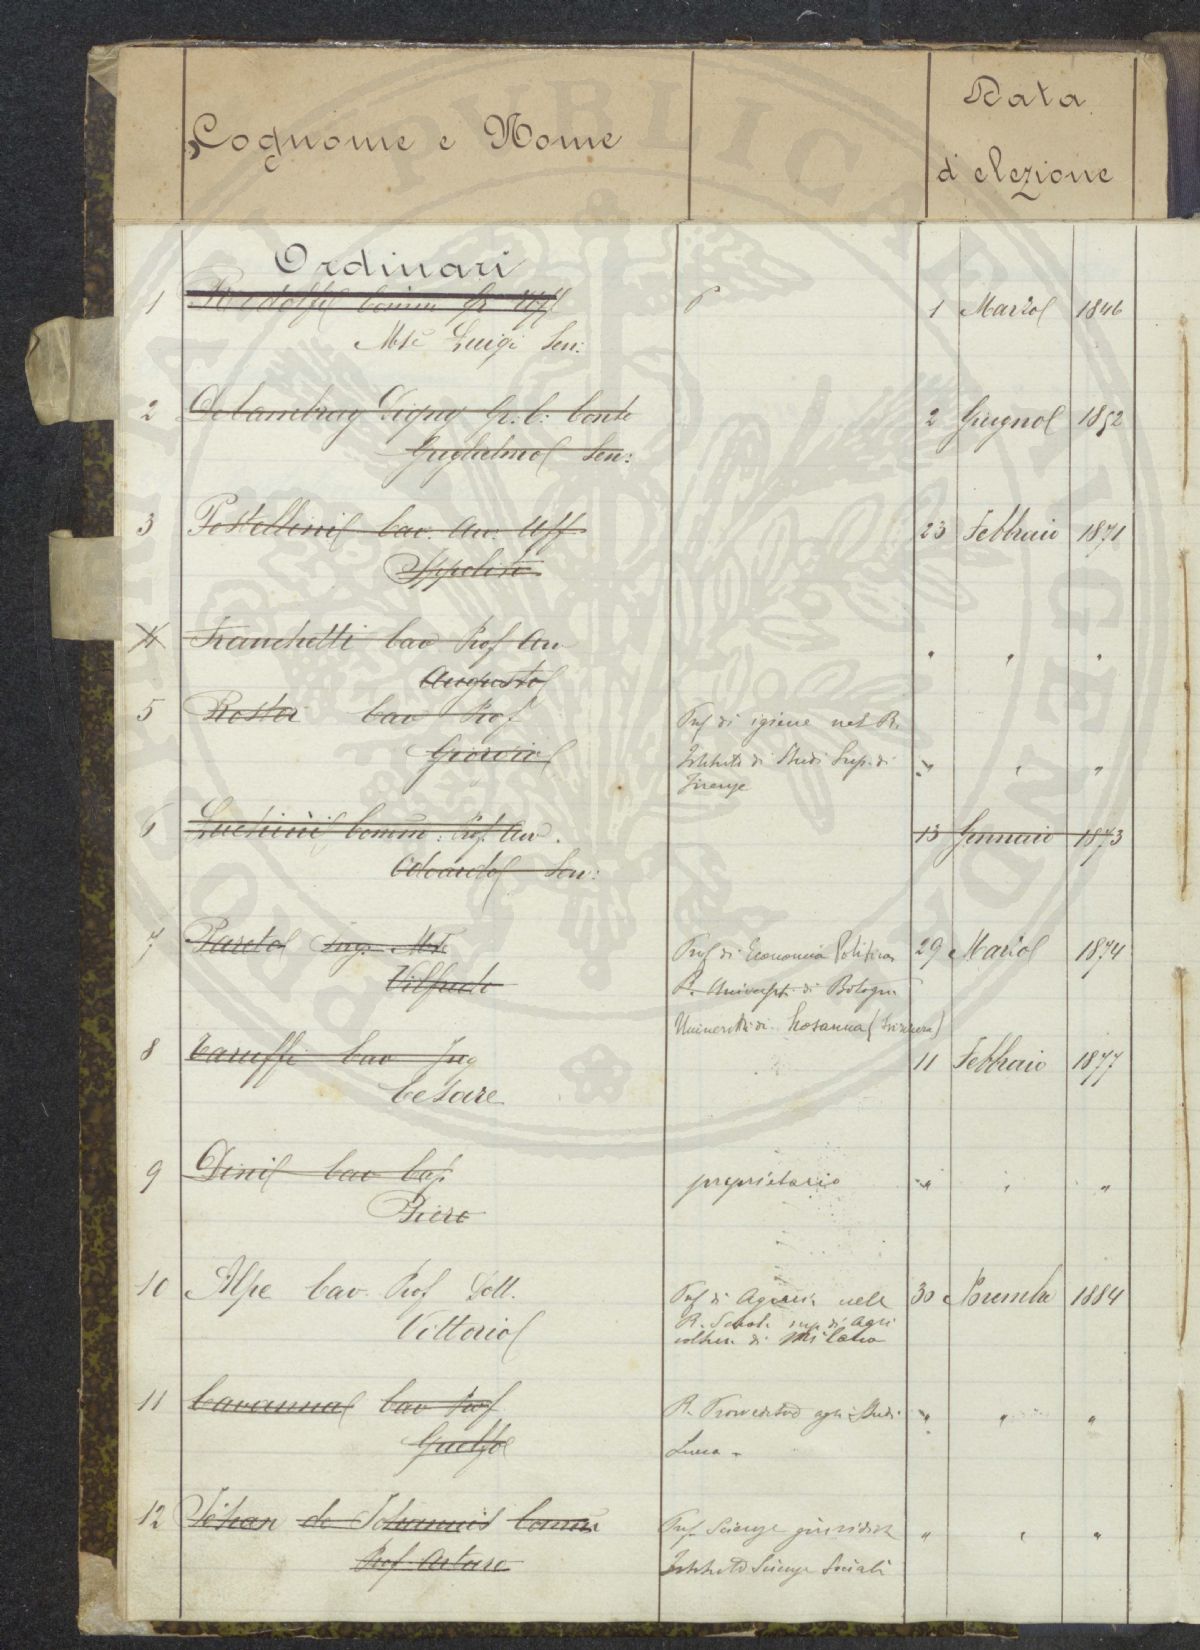 Cognome e Nome
Data
d'elezione
Ordinari
1 Ridolfi Comm Gr Uff 1 Marzo 1846
Mse Luigi Sen:
2 De Cambray Digny Gr. C: Conte 2 Giugno 1852
Guglielmo Sen:
3 Pestellini Cav. Avv. Uff 23 Febbraio 1871
Ippolito
4 Franchetti Cav Prof Avv " " "
Augusto
5 Roster Cav Prof
Giorgio
Prof di igiene nel R.
Istituto di Studi Sup. di " " "
Firenze
6 Luchini Comm: Prof. Avv. 13 Gennaio 1873
Odoardo Sen:
7 Pareto Ing. Mse 29 Marzo 1874
Vilfredo
Prof di Economia Politica
R. Universit. di Bologna
Università di Losanna (Svizzera)
8 Taruffi Cav Ing 11 Febbraio 1877
Cesare
9 Dini Cav Cap. proprietario " " "
Piero
10 Alpe Cav. Prof Dott. 30 Novembre 1884
Vittorio
Prof di Agraria nella
R. Scuola sup. di agri
coltura di Milano
11 Cavanna Cav Prof " " "
Guelfo
R. Provveditore agli Studi
Lucca
12 Jéhan de Johannis Comm " " "
Prof. Arturo
Prof. Scienze giuridiche
Istituto Scienze Sociali
PUBLICAE